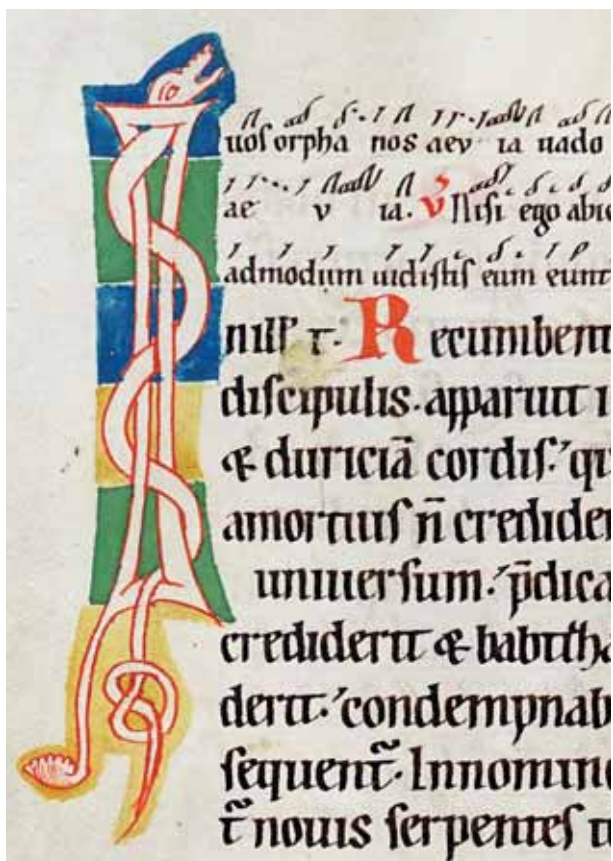 uos orpha nos aev ia uado
ae v ia. v Nisi ego abie
admodum uidistis eum eunt
nill' t. Recumbent
discipulis. apparuit i
& duriciā cordis. qu
amortuis n̄ credider
uniuersum. p̄dica
crediderit & babtitha
derit. condempnab
sequent̄. Innomine
t̄ nouis serpentes t